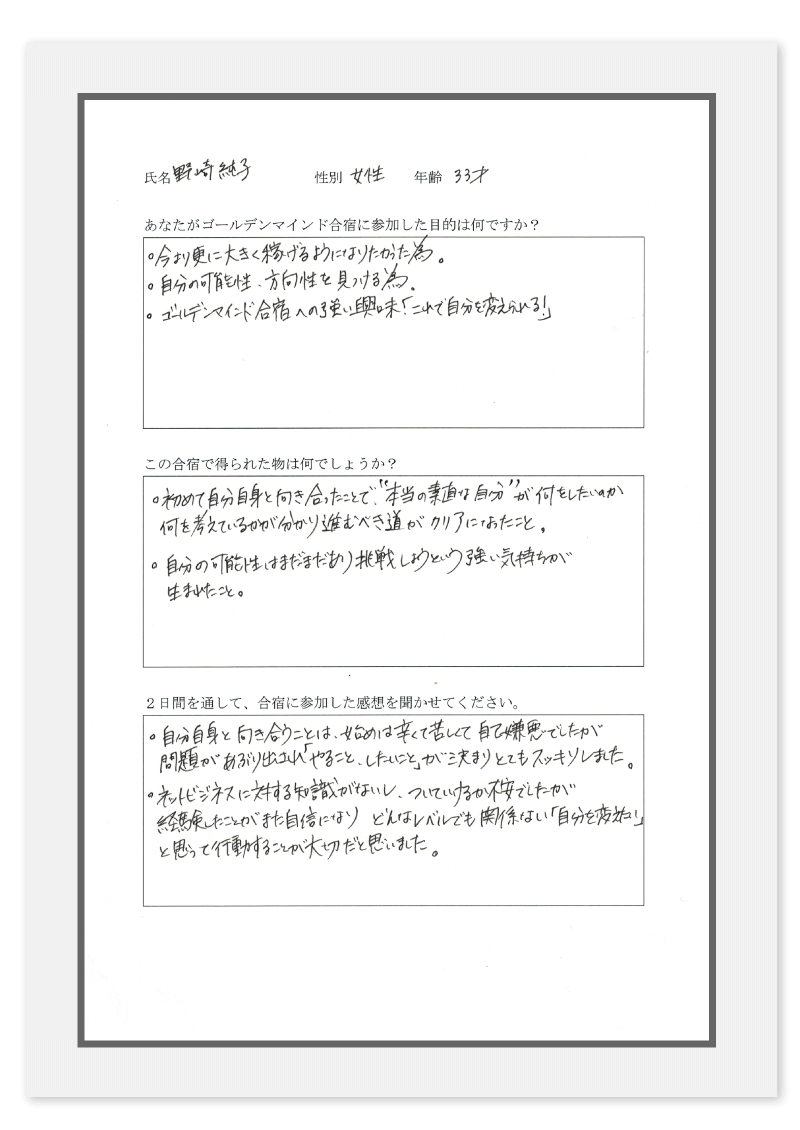 氏名 野崎純子 性別 女性 年齢 33才
あなたがゴールデンマインド合宿に参加した目的は何ですか？
。今より更に大きく稼げるようになりたかった為。
。自分の可能性、方向性を見つける為。
。ゴールデンマインド合宿への強い興味！「これで自分を変えられる!」
この合宿で得られた物は何でしょうか？
。初めて自分自身と向き合ったことで、“本当の素直な自分”が何をしたいのか
何を考えているかがが分かり進むべき道がクリアになったこと。
。自分の可能性はまだまだあり挑戦しようという強い気持ちが
生まれたこと。
２日間を通して、合宿に参加した感想を聞かせてください。
。自分自身と向き合うことは、始めは辛くて苦しくて自己嫌悪でしたが
問題があぶり出され「やること、したいこと」が決まりとてもスッキリしました。
。ネットビジネスに対する知識がないし、ついていけるか不安でしたが
経験したことがまた自信になり どんなレベルでも関係ない「自分を変える!」
と思って行動することが大切だと思いました。